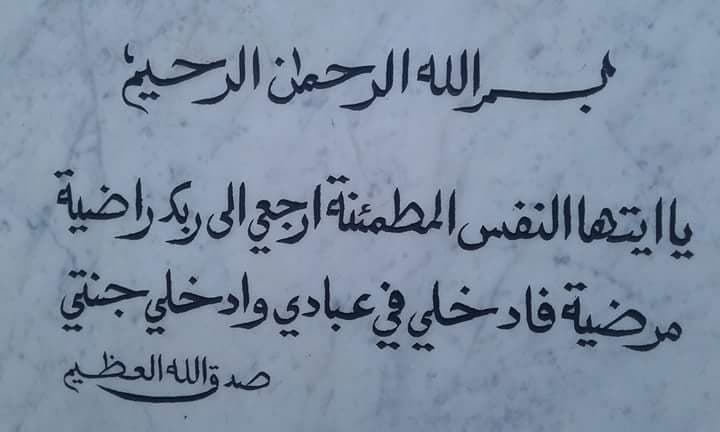 بسم الله الرحمان الرحيم
يا ايتها النفس المطمئنة ارجعي الى ربك راضية
مرضية فادخلي في عبادي وادخلي جنتي
صدق الله العظيم